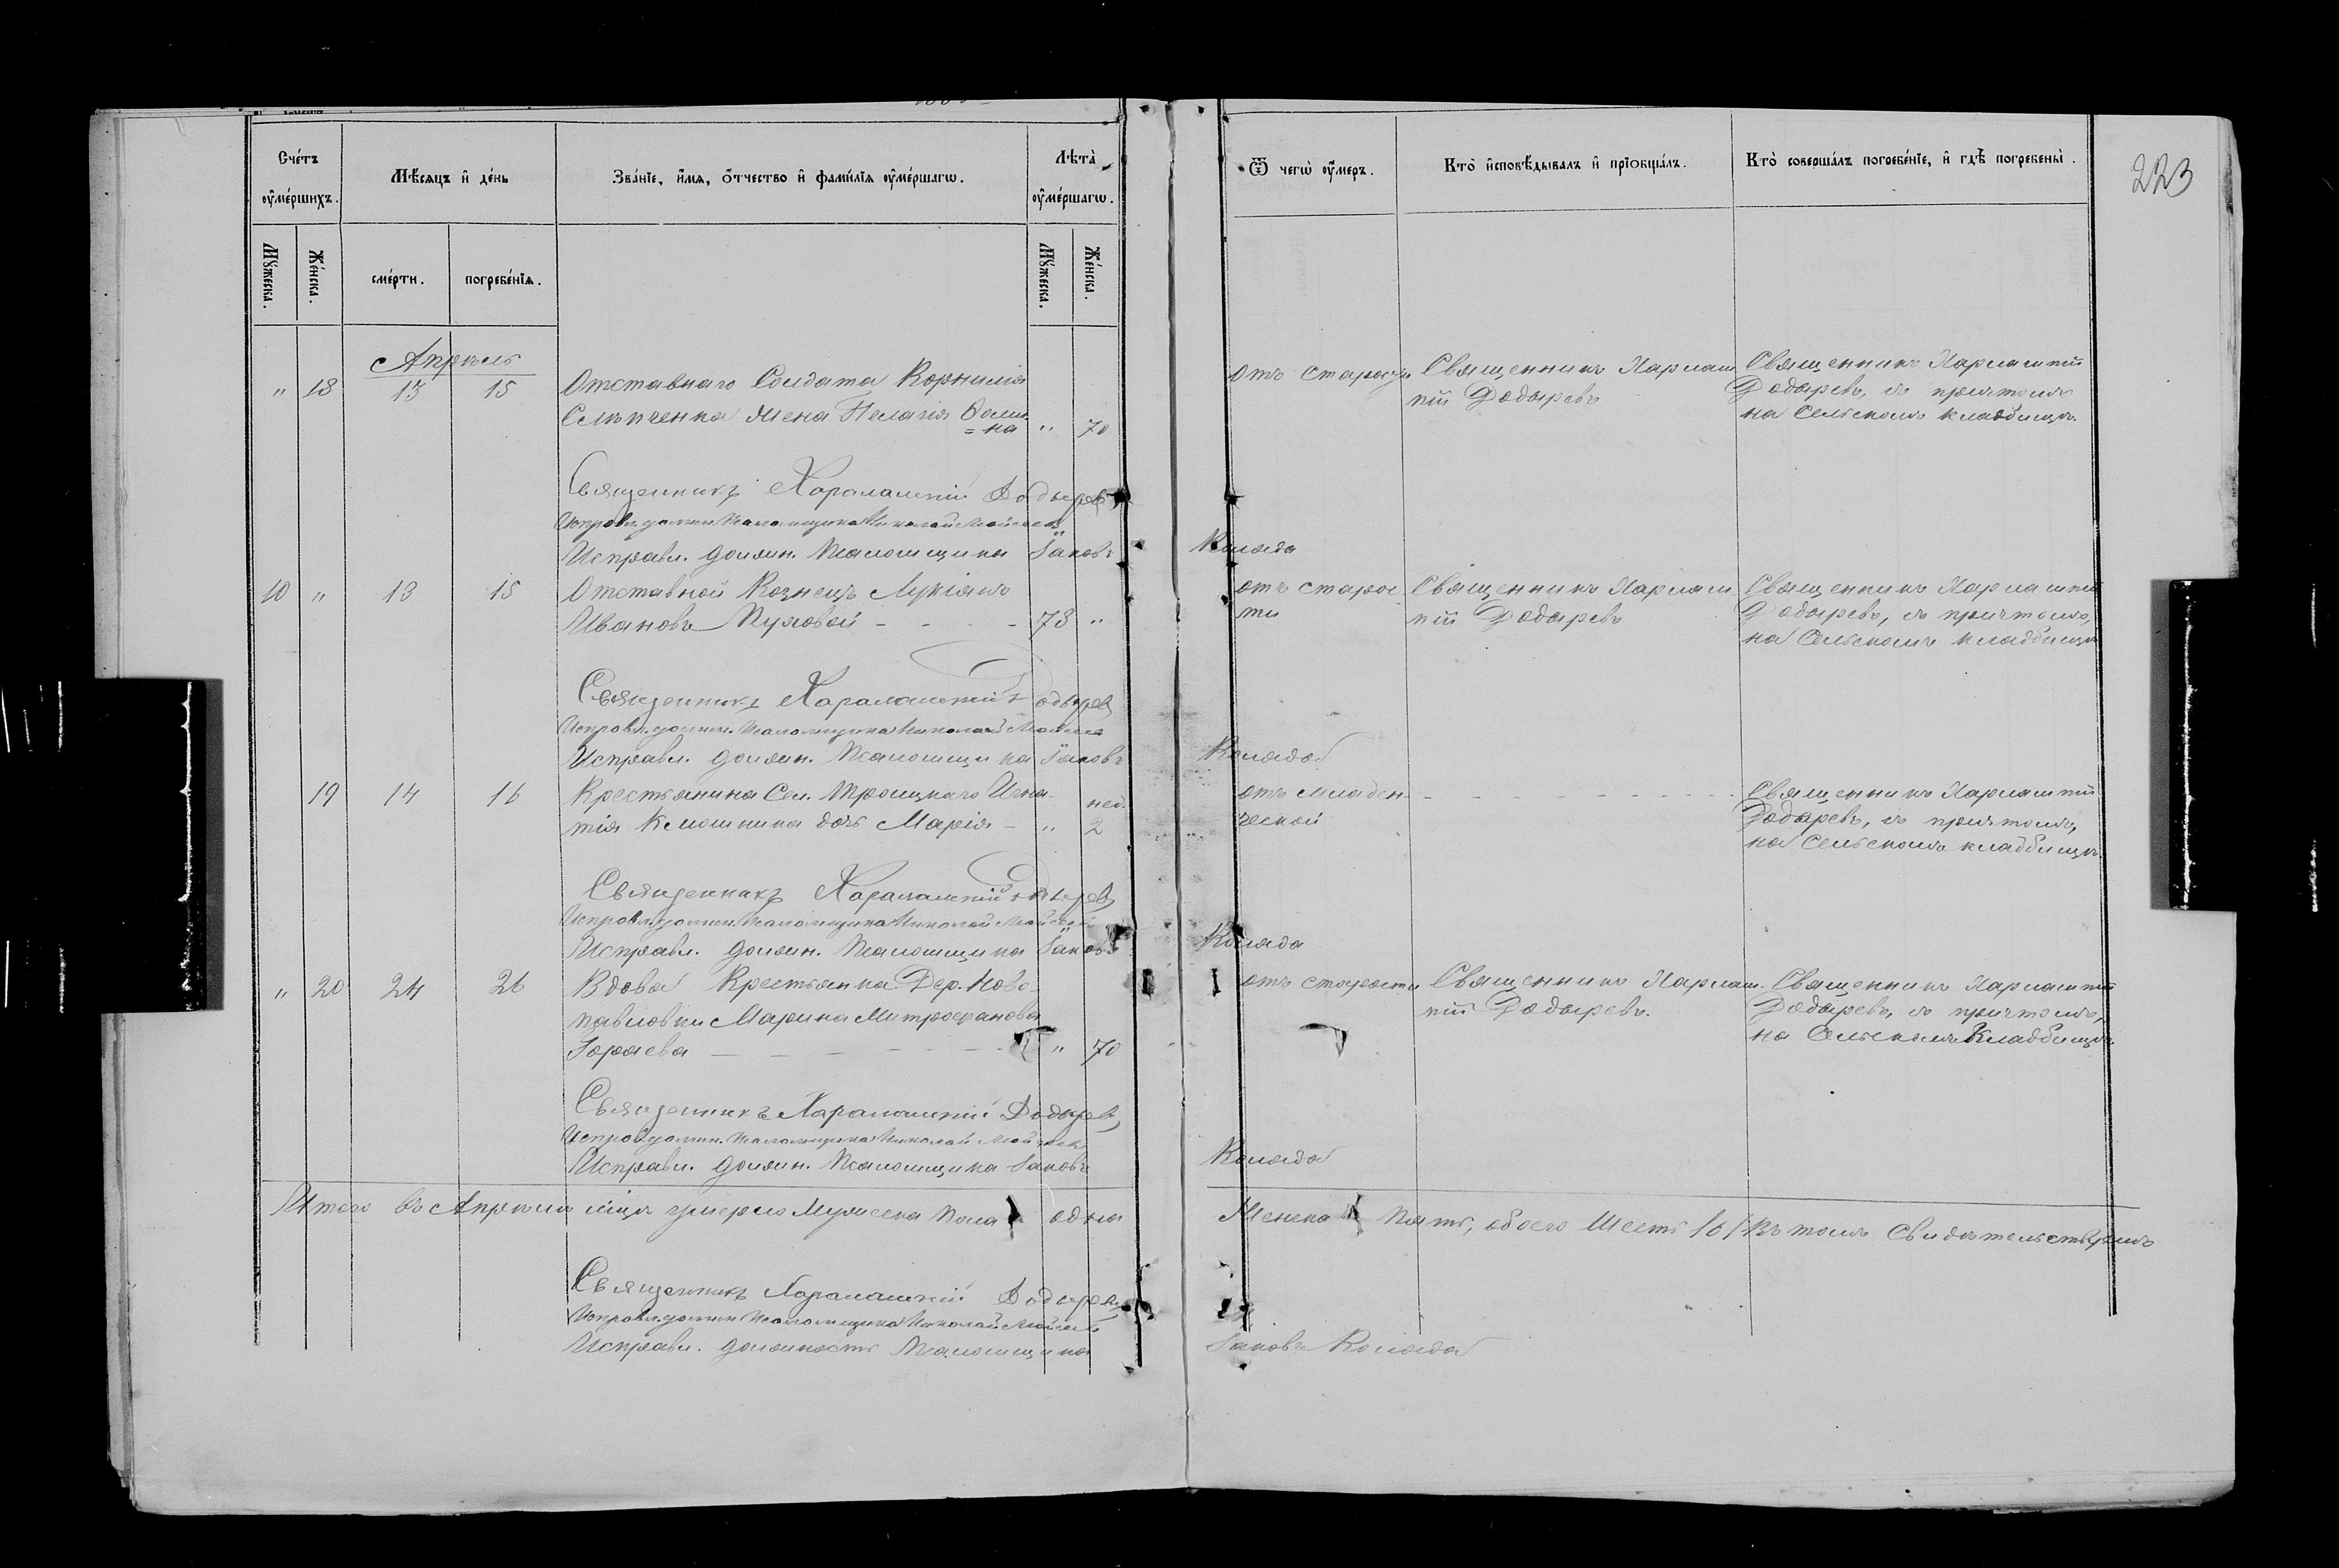 223
Счетъ оумершихъ.
Мѣсяцъ и день
Званіе, имя, отчество и фамилія оумершагѡ.
Лѣта оумершагѡ.
Ѿ чегѡ оумеръ.
Кто исповѣдывалъ и пріобщалъ.
Кто совершалъ погребеніе, и гдѣ погребены.
Мужеска.
Женска.
смерти.
погребенія.
Мужеска.
Женска.
Апрѣль
" 18 13 15 Отставнаго Солдата Корнилія
жена Пелагія Фоми-
=на " 70
отъ старости
Священникъ Харлам
пій Додыревъ
Священникъ Харлампій
Додыревъ, съ причтомъ
на Сельскомъ кладбищѣ.
Священникъ Харалампій Додыревъ
Исправл. должн. Псаломщика Николай
Исправл. должн. Псаломщика Іаковъ Коляда
10 " 13 15 Отставной Кознецъ Лукіанъ
Ивановъ Пуховой - - - - 73 "
отъ старос
ти
Священникъ Харлам
пій Додыревъ
Священникъ Харлампій
Додыревъ, съ причтомъ,
на Сельскомъ кладбищѣ
Священникъ Харалампій Додыревъ
Исправл. должн. Псаломщика Николай
Исправл. должн. Псаломщика Іаковъ Коляда
19 14 16 Крестьянина Сел. Троицкаго Игна-
тія Клюшника дочь Марія - " нед. 2
отъ младен
ческой
Священникъ Харлампій
Додыревъ, съ причтомъ,
на Сельскомъ кладбищѣ.
Священникъ Харалампій Додыревъ
Исправл. должн. Псаломщика Николай
Исправл. должн. Псаломщика Іаковъ Коляда
" 20 24 26 Вдова Крестьянка Дер. Ново-
павловки Марина Митрофанова
" 70
отъ старости
Священникъ Харлам-
пій Додыревъ.
Священникъ Харлампій
Додыревъ, съ причтомъ,
на Сельскомъ Кладбищѣ.
Священникъ Харалампій Додыревъ
Исправ. должн. Псаломщика Николай
Исправл. должн. Псаломщика Іаковъ Коляда
Итого въ Апрѣлѣ мцѣ умерло Мужеска пола одна Женска пять, обоего Шесть /6/ Въ томъ Свидѣтельствуемъ
Священникъ Харалампій Додыревъ
Исправл. должн. Псаломщика Николай
Исправл. должность Псаломщика Іаковъ Коляда